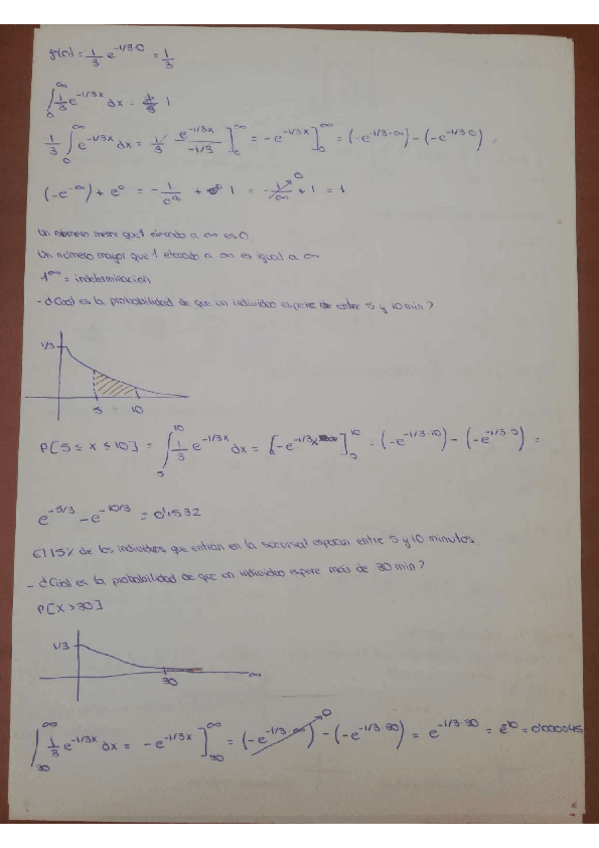 f(0) = 1/3 e^{-1/3·0} = 1/3
∫_0^∞ 1/3 e^{-1/3x} dx = 1
1/3 ∫_0^∞ e^{-1/3x} dx = 1/3 e^{-1/3x}/-1/3 ]_0^∞ = -e^{-1/3x} ]_0^∞ = (-e^{-1/3·∞}) - (-e^{-1/3·0}) =
(-e^{-∞}) + e^0 = - 1/e^∞ + 1 = - 1/∞ + 1 = 1
0
Un número menor que 1 elevado a ∞ es 0.
Un número mayor que 1 elevado a ∞ es igual a ∞
1^∞ = indeterminación
- ¿Cuál es la probabilidad de que un individuo espere de entre 5 y 10 min?
1/3
5 10
P[5 ≤ x ≤ 10] = ∫_5^10 1/3 e^{-1/3x} dx = [-e^{-1/3x}]_5^10 = (-e^{-1/3·10}) - (-e^{-1/3·5}) =
e^{-5/3} - e^{-10/3} = 0'1532
El 15% de los individuos que entran en la sucursal esperan entre 5 y 10 minutos.
- ¿Cuál es la probabilidad de que un individuo espere más de 30 min?
P[X > 30]
1/3
30 ∞
∫_30^∞ 1/3 e^{-1/3x} dx = -e^{-1/3x} ]_30^∞ = (-e^{-1/3·∞}) - (-e^{-1/3·30}) = e^{-1/3·30} = e^{-10} = 0'000045
0